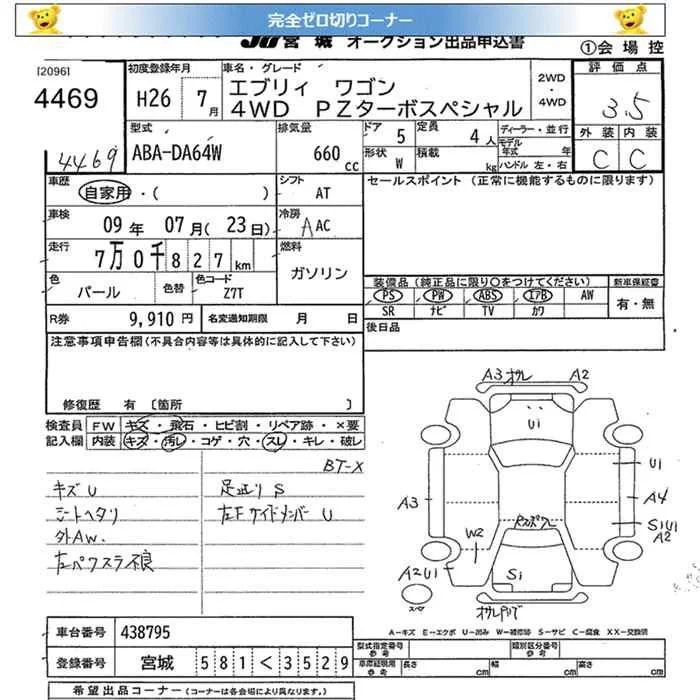 完全ゼロ切りコーナー
JU宮城 オークション出品申込書
①会場控
[20961
4469
4469
初度登録年月
H26 7月
車名・グレード
エブリィ ワゴン
4WD PZターボスペシャル
2WD
・
4WD
評価点
3.5
外装 内装
C C
型式
ABA-DA64W
排気量
660cc
ドア 5
定員 4人
形状 W
積載 kg
ディーラー・並行
モデル年式 年
ハンドル 左・右
車歴
自家用・( )
シフト
AT
セールスポイント (正常に機能するものに限ります)
車検
09年 07月(23日)
冷房
AAC
走行
7万0千827km
燃料
ガソリン
色
パール
色替
色コード
Z7T
装備品(純正品に限り○をつけてください)
新車保証書
PS PW ABS エアB AW
有・無
SR ナビ TV カワ
R券 9,910円
名変通知期限 月 日
後日品
注意事項申告欄(不具合内容等は具体的に記入して下さい)
修復歴 有 [箇所 ]
検査員 FW キズ・飛石・ヒビ割・リペア跡・×要
記入欄 内装 キズ・汚レ・コゲ・穴・スレ・キレ・破レ
BT-X
キズU
シートヘタリ
外AW.
左パワスラ不良
足廻りS
左Fサイドメンバー U
A3 オサレ A2
U1
U1
A3
A4
S1U1
A2
W2
A2U1
S1
スペア
A-キズ E-エクボ U-凹み W-補修跡 S-サビ C-腐食 XX-交換済
車台番号 438795
登録番号 宮城 581 < 3529
型式指定番号
参考
類別区分番号
参考
車庫証明用
参考
長さ cm
幅 cm
高さ cm
希望出品コーナー (コーナーは各会場により異なります。)